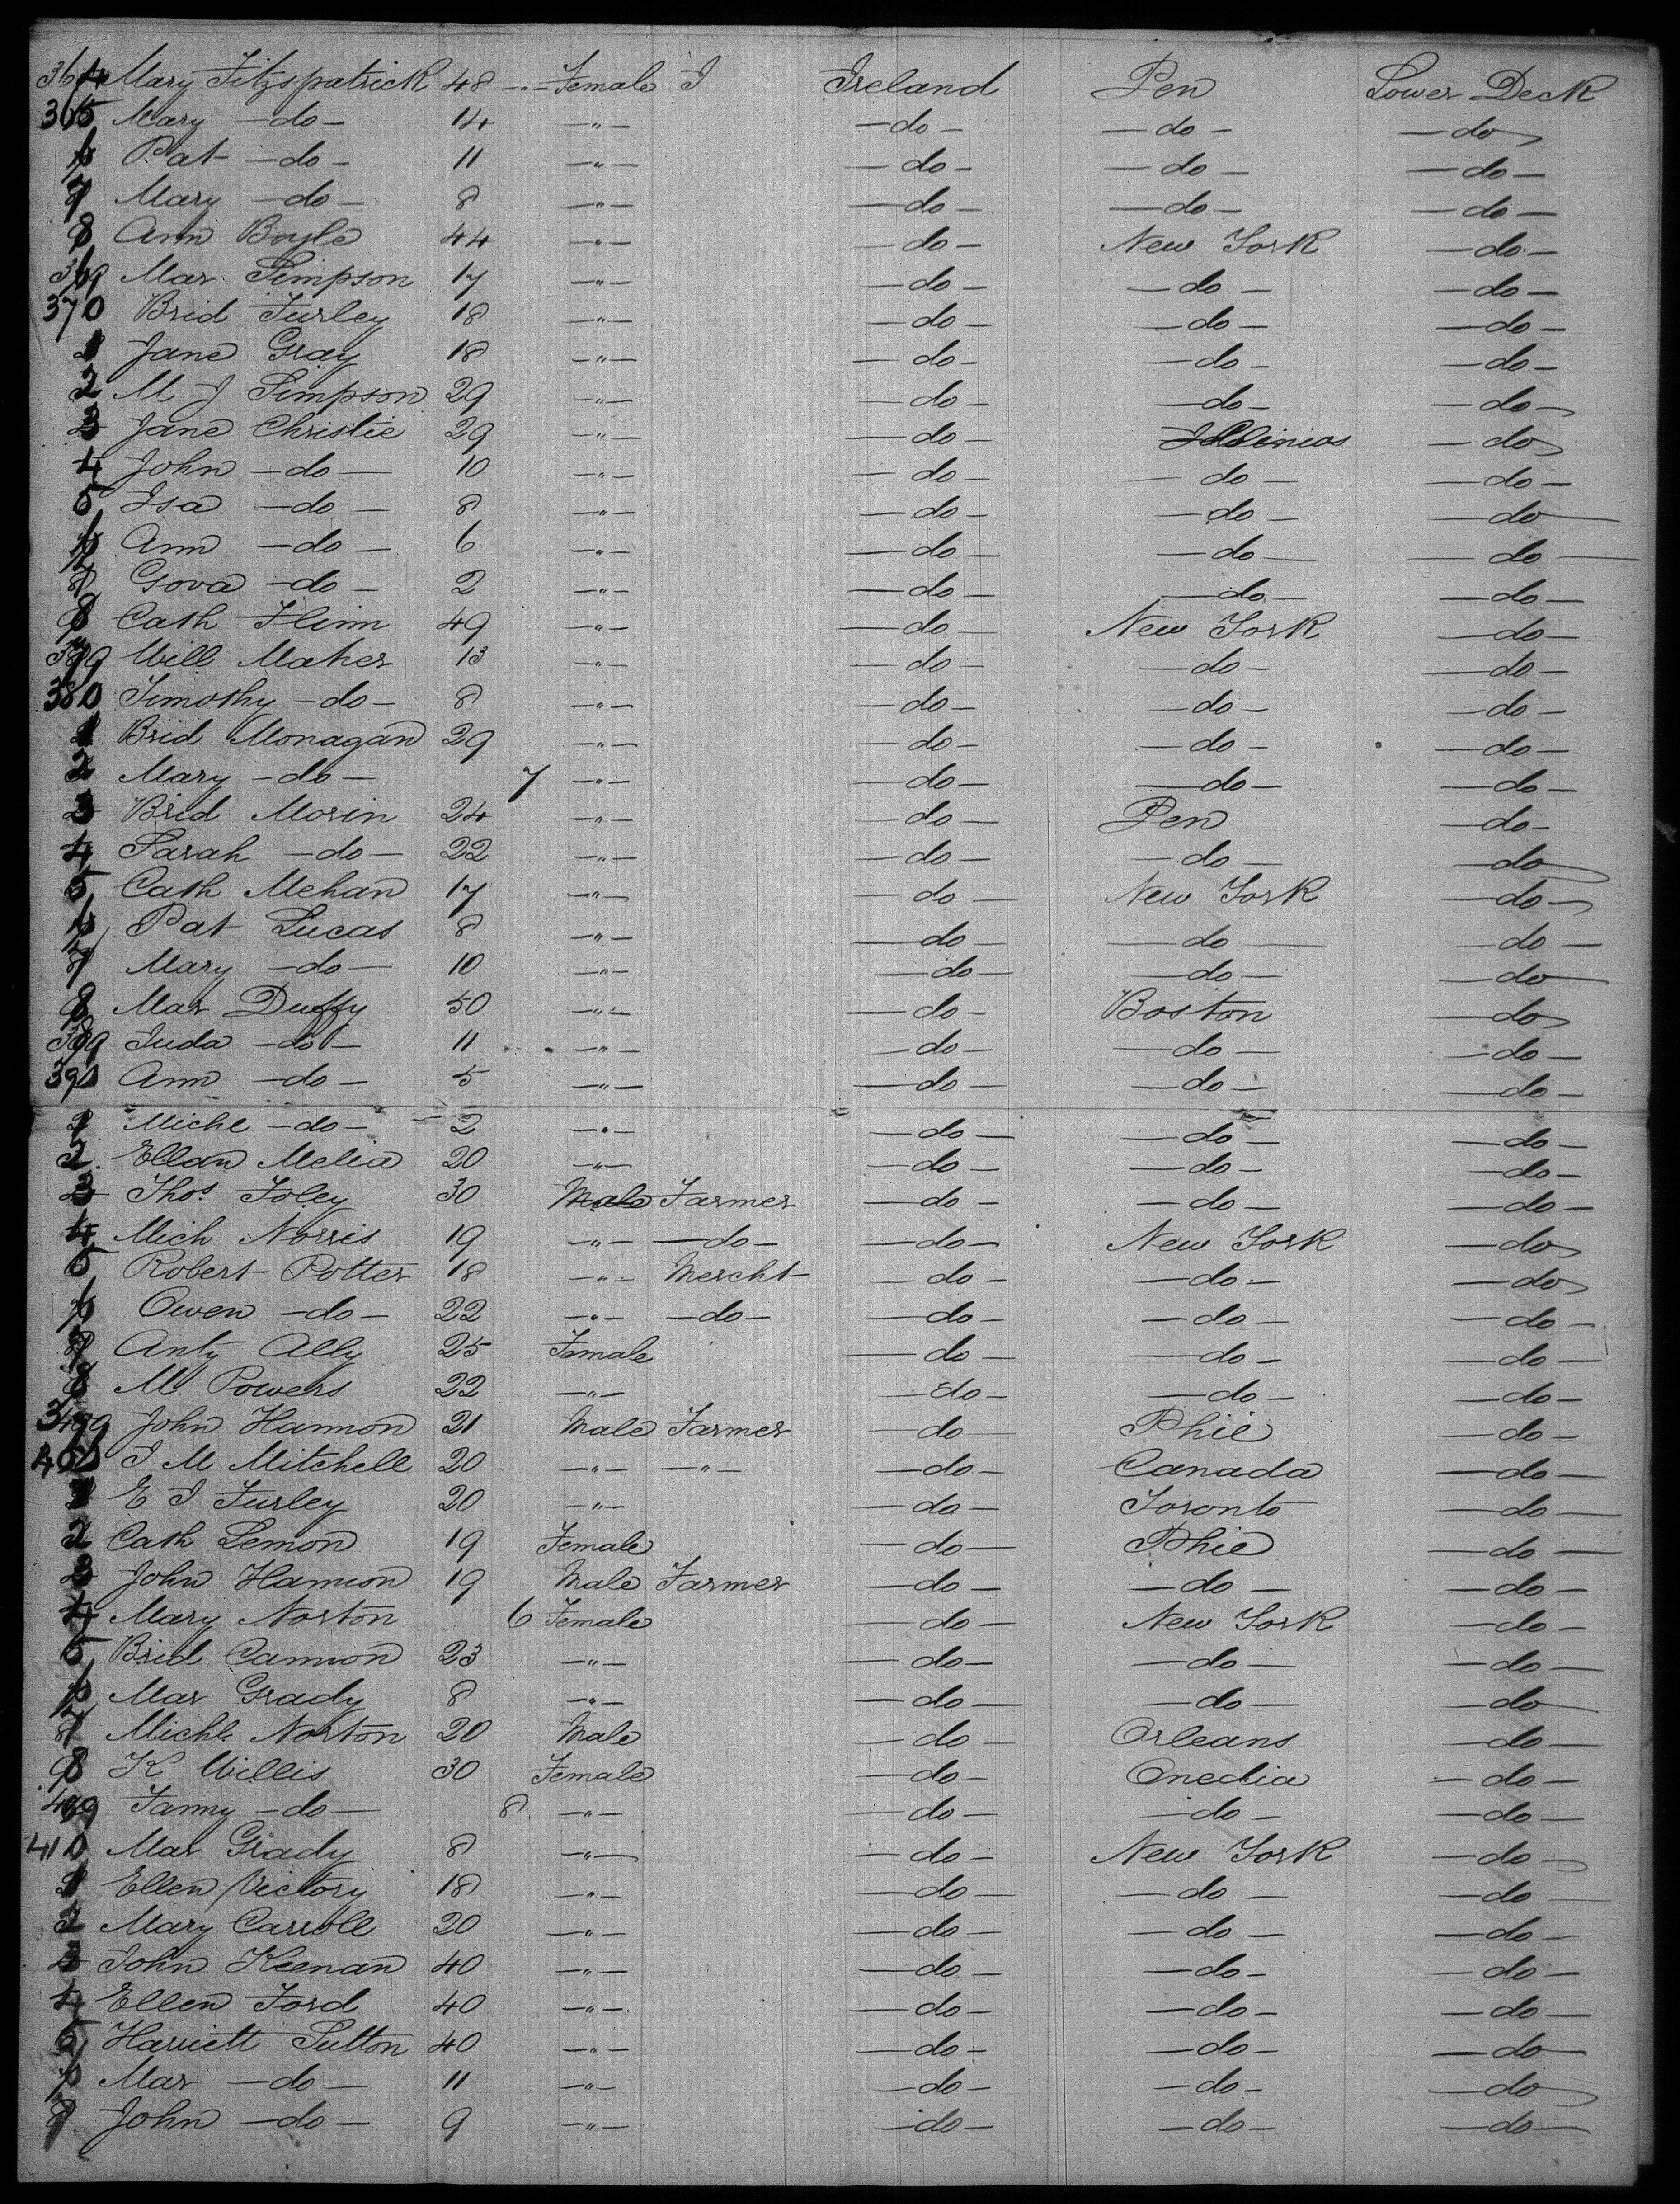 364 Mary Fitzspatrick 48 -"- Female I Ireland Pen Lower Deck
365 Mary -do- 14 -"- -do- -do- -do-
6 Pat -do- 11 -"- -do- -do- -do-
7 Mary -do- 8 -"- -do- -do- -do-
8 Ann Boyle 44 -"- -do- New York -do-
369 Mar Simpson 17 -"- -do- -do- -do-
370 Brid Turley 18 -"- -do- -do- -do-
1 Jane Gray 18 -"- -do- -do- -do-
2 M J Simpson 29 -"- -do- -do- -do-
3 Jane Christie 29 -"- -do- Illinios -do-
4 John -do- 10 -"- -do- -do- -do-
5 Isa -do- 8 -"- -do- -do- -do-
6 Ann -do- 6 -"- -do- -do- -do-
7 Gova -do- 2 -"- -do- -do- -do-
8 Cath Flinn 49 -"- -do- New York -do-
379 Will Maher 13 -"- -do- -do- -do-
380 Timothy -do- 8 -"- -do- -do- -do-
1 Brid Monagan 29 -"- -do- -do- -do-
2 Mary -do- 7 -"- -do- -do- -do-
3 Brid Morin 24 -"- -do- Pen -do-
4 Sarah -do- 22 -"- -do- -do- -do-
5 Cath Mehan 17 -"- -do- New York -do-
6 Pat Lucas 8 -"- -do- -do- -do-
7 Mary -do- 10 -"- -do- -do- -do-
8 Mar Duffy 50 -"- -do- Boston -do-
389 Juda -do- 11 -"- -do- -do- -do-
390 Ann -do- 5 -"- -do- -do- -do-
1 Michl -do- 2 -"- -do- -do- -do-
2 Ellan Melia 20 -"- -do- -do- -do-
3 Thos. Foley 30 Male Farmer -do- -do- -do-
4 Mich Norris 19 -"- -do- -do- New York -do-
5 Robert Potter 18 -"- Mercht -do- -do- -do-
6 Owen -do- 22 -"- -do- -do- -do- -do-
7 Anty Ally 25 Female -do- -do- -do-
8 M Powers 22 -"- -do- -do- -do-
399 John Hannon 21 Male Farmer -do- Phil -do-
400 J M Mitchell 20 -"- -"- -do- Canada -do-
1 E J Turley 20 -"- -do- Toronto -do-
2 Cath Lemon 19 Female -do- Phil -do-
3 John Hannon 19 Male Farmer -do- -do- -do-
4 Mary Norton 6 Female -do- New York -do-
5 Brid Cannon 23 -"- -do- -do- -do-
6 Mar Grady 8 -"- -do- -do- -do-
7 Michl Norton 20 Male -do- Orleans -do-
8 K Willis 30 Female -do- Onedia -do-
409 Fanny -do- 8 -"- -do- -do- -do-
410 Mar Grady 8 -"- -do- New York -do-
1 Ellen Victory 18 -"- -do- -do- -do-
2 Mary Carroll 20 -"- -do- -do- -do-
3 John Keenan 40 -"- -do- -do- -do-
4 Ellen Ford 40 -"- -do- -do- -do-
5 Harriett Sutton 40 -"- -do- -do- -do-
6 Mar -do- 11 -"- -do- -do- -do-
7 John -do- 9 -"- -do- -do- -do-